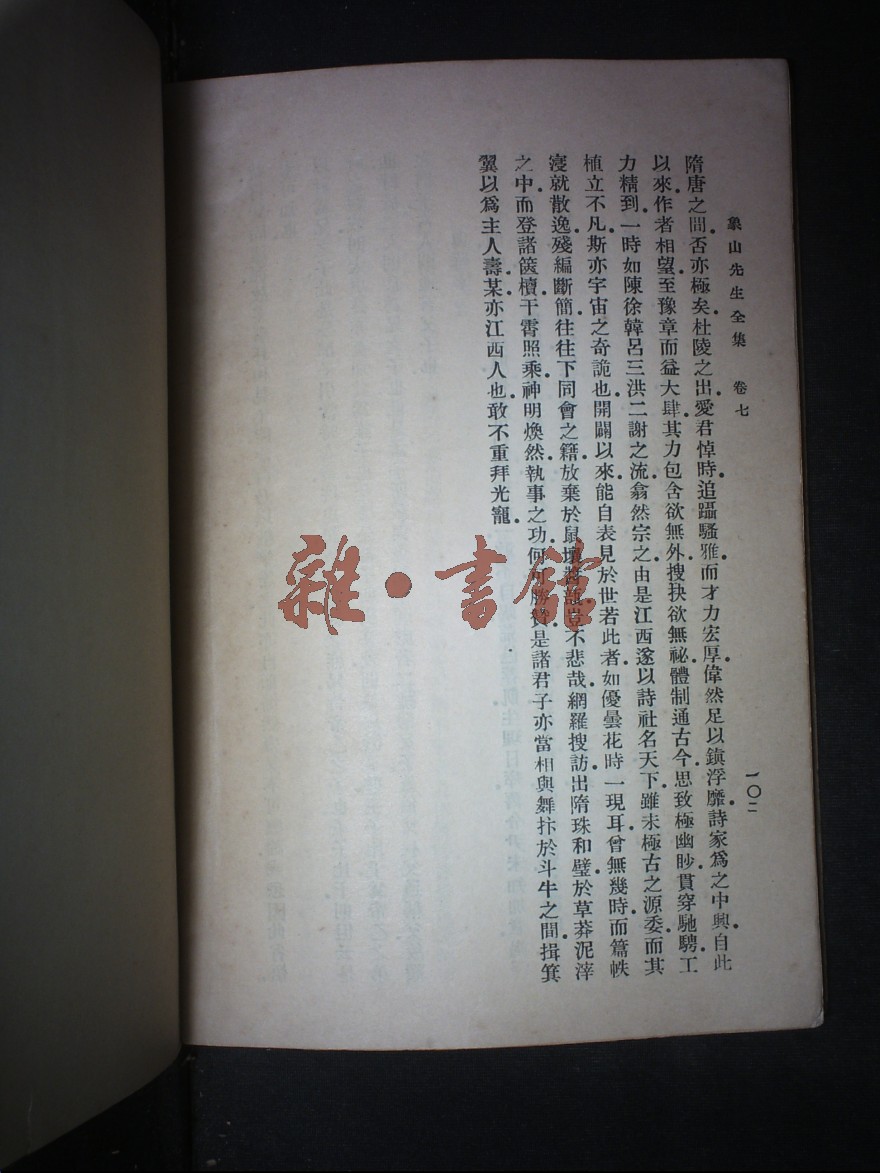 象山先生全集　卷七
一〇二
隋唐之間否亦極矣．杜陵之出．愛君悼時．追躡騷雅．而才力宏厚．偉然足以鎮浮靡．詩家爲之中興．自此
以來．作者相望．至豫章而益大肆其力．包含欲無外．搜抉欲無祕．體制通古今．思致極幽眇．貫穿馳騁．工
力精到．一時如陳徐韓呂三洪二謝之流．翕然宗之．由是江西遂以詩社名天下．雖未極古之源委．而其
植立不凡．斯亦宇宙之奇詭也．開闢以來．能自表見於世若此者．如優曇花時一現耳．曾無幾時．而篇帙
寖就散逸．殘編斷簡．往往下同會之籍．放棄於鼠壤醬瓿．豈不悲哉．網羅搜訪．出隋珠和璧於草莽泥滓
之中．而登諸篋櫝．干霄照乘．神明煥然．執事之功．何可勝贊．是諸君子亦當相與舞抃於斗牛之間．揖箕
翼以爲主人壽．某亦江西人也．敢不重拜光寵．
雜・書館